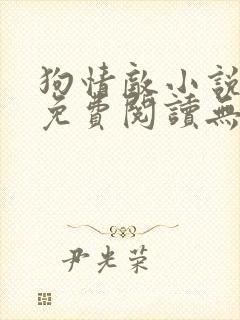 狗情敵小說
免費閱讀無
尹光榮